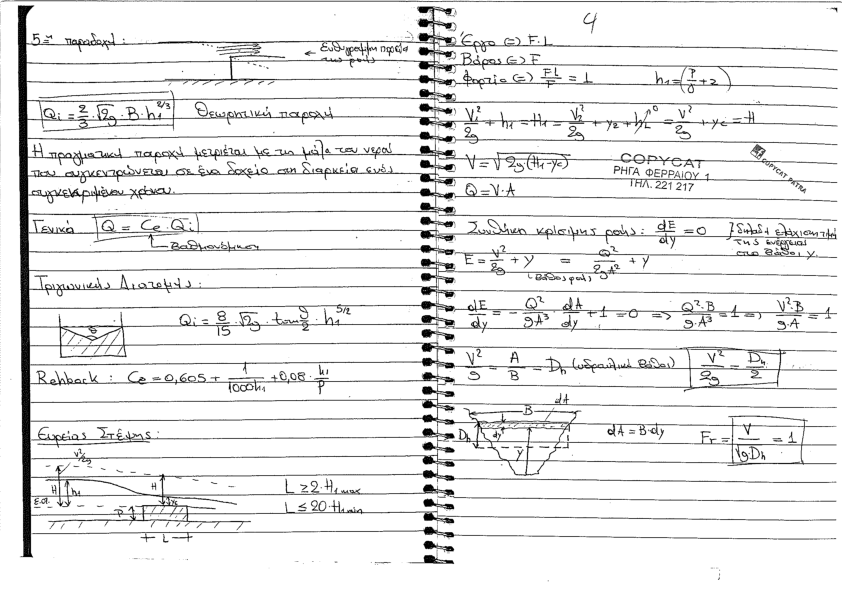 5η παραδοχή:
ευθύγραμμη πορεία
της ροής
Qi = 2/3 · √2g · B · h1^2/3 Θεωρητική παροχή
Η πραγματική παροχή μετριέται με τη μάζα του νερού
που συγκεντρώνεται σε ένα δοχείο στη διάρκεια ενός
συγκεκριμένου χρόνου.
Γενικά Q = Ce · Qi
Βαθμονόμηση
Τριγωνικής Διατομής:
θ
Qi = 8/15 · √2g · tan θ/2 · h1^5/2
Rehback: Ce = 0,605 + 1/1000h1 + 0,08 · h1/P
Ευρείας Στέψης:
V²/2g
H h1 H yc
P
L
L ≥ 2 · H1max
L ≤ 20 · H1min
4
Έργο (=) F.L
Βάρος (=) F
Φορτίο (=) FL/F = L h1 = (P/γ + z)
V1²/2g + h1 = H1 = V2²/2g + y2 + hL^0 = V²/2g + yc = H
V = √2g·(H1-yc)
Q = V·A
COPYCAT
ΡΗΓΑ ΦΕΡΡΑΙΟΥ 1
ΤΗΛ. 221 217
COPYCAT PATRA
Συνθήκη κρίσιμης ροής: dE/dy = 0 } δηλαδή ελάχιστη τιμή
της ενέργειας
στο βάθος y.
E = V²/2g + y = Q²/2gA² + y
(βάθος ροής)
dE/dy = - Q²/gA³ · dA/dy + 1 = 0 => Q²·B/g·A³ = 1 => V²·B/g·A = 1
V²/g = A/B = Dh (υδραυλικό βάθος) V²/2g = Dh/2
B dA
Dh dy y
dA = B·dy
Fr = V/√g·Dh = 1